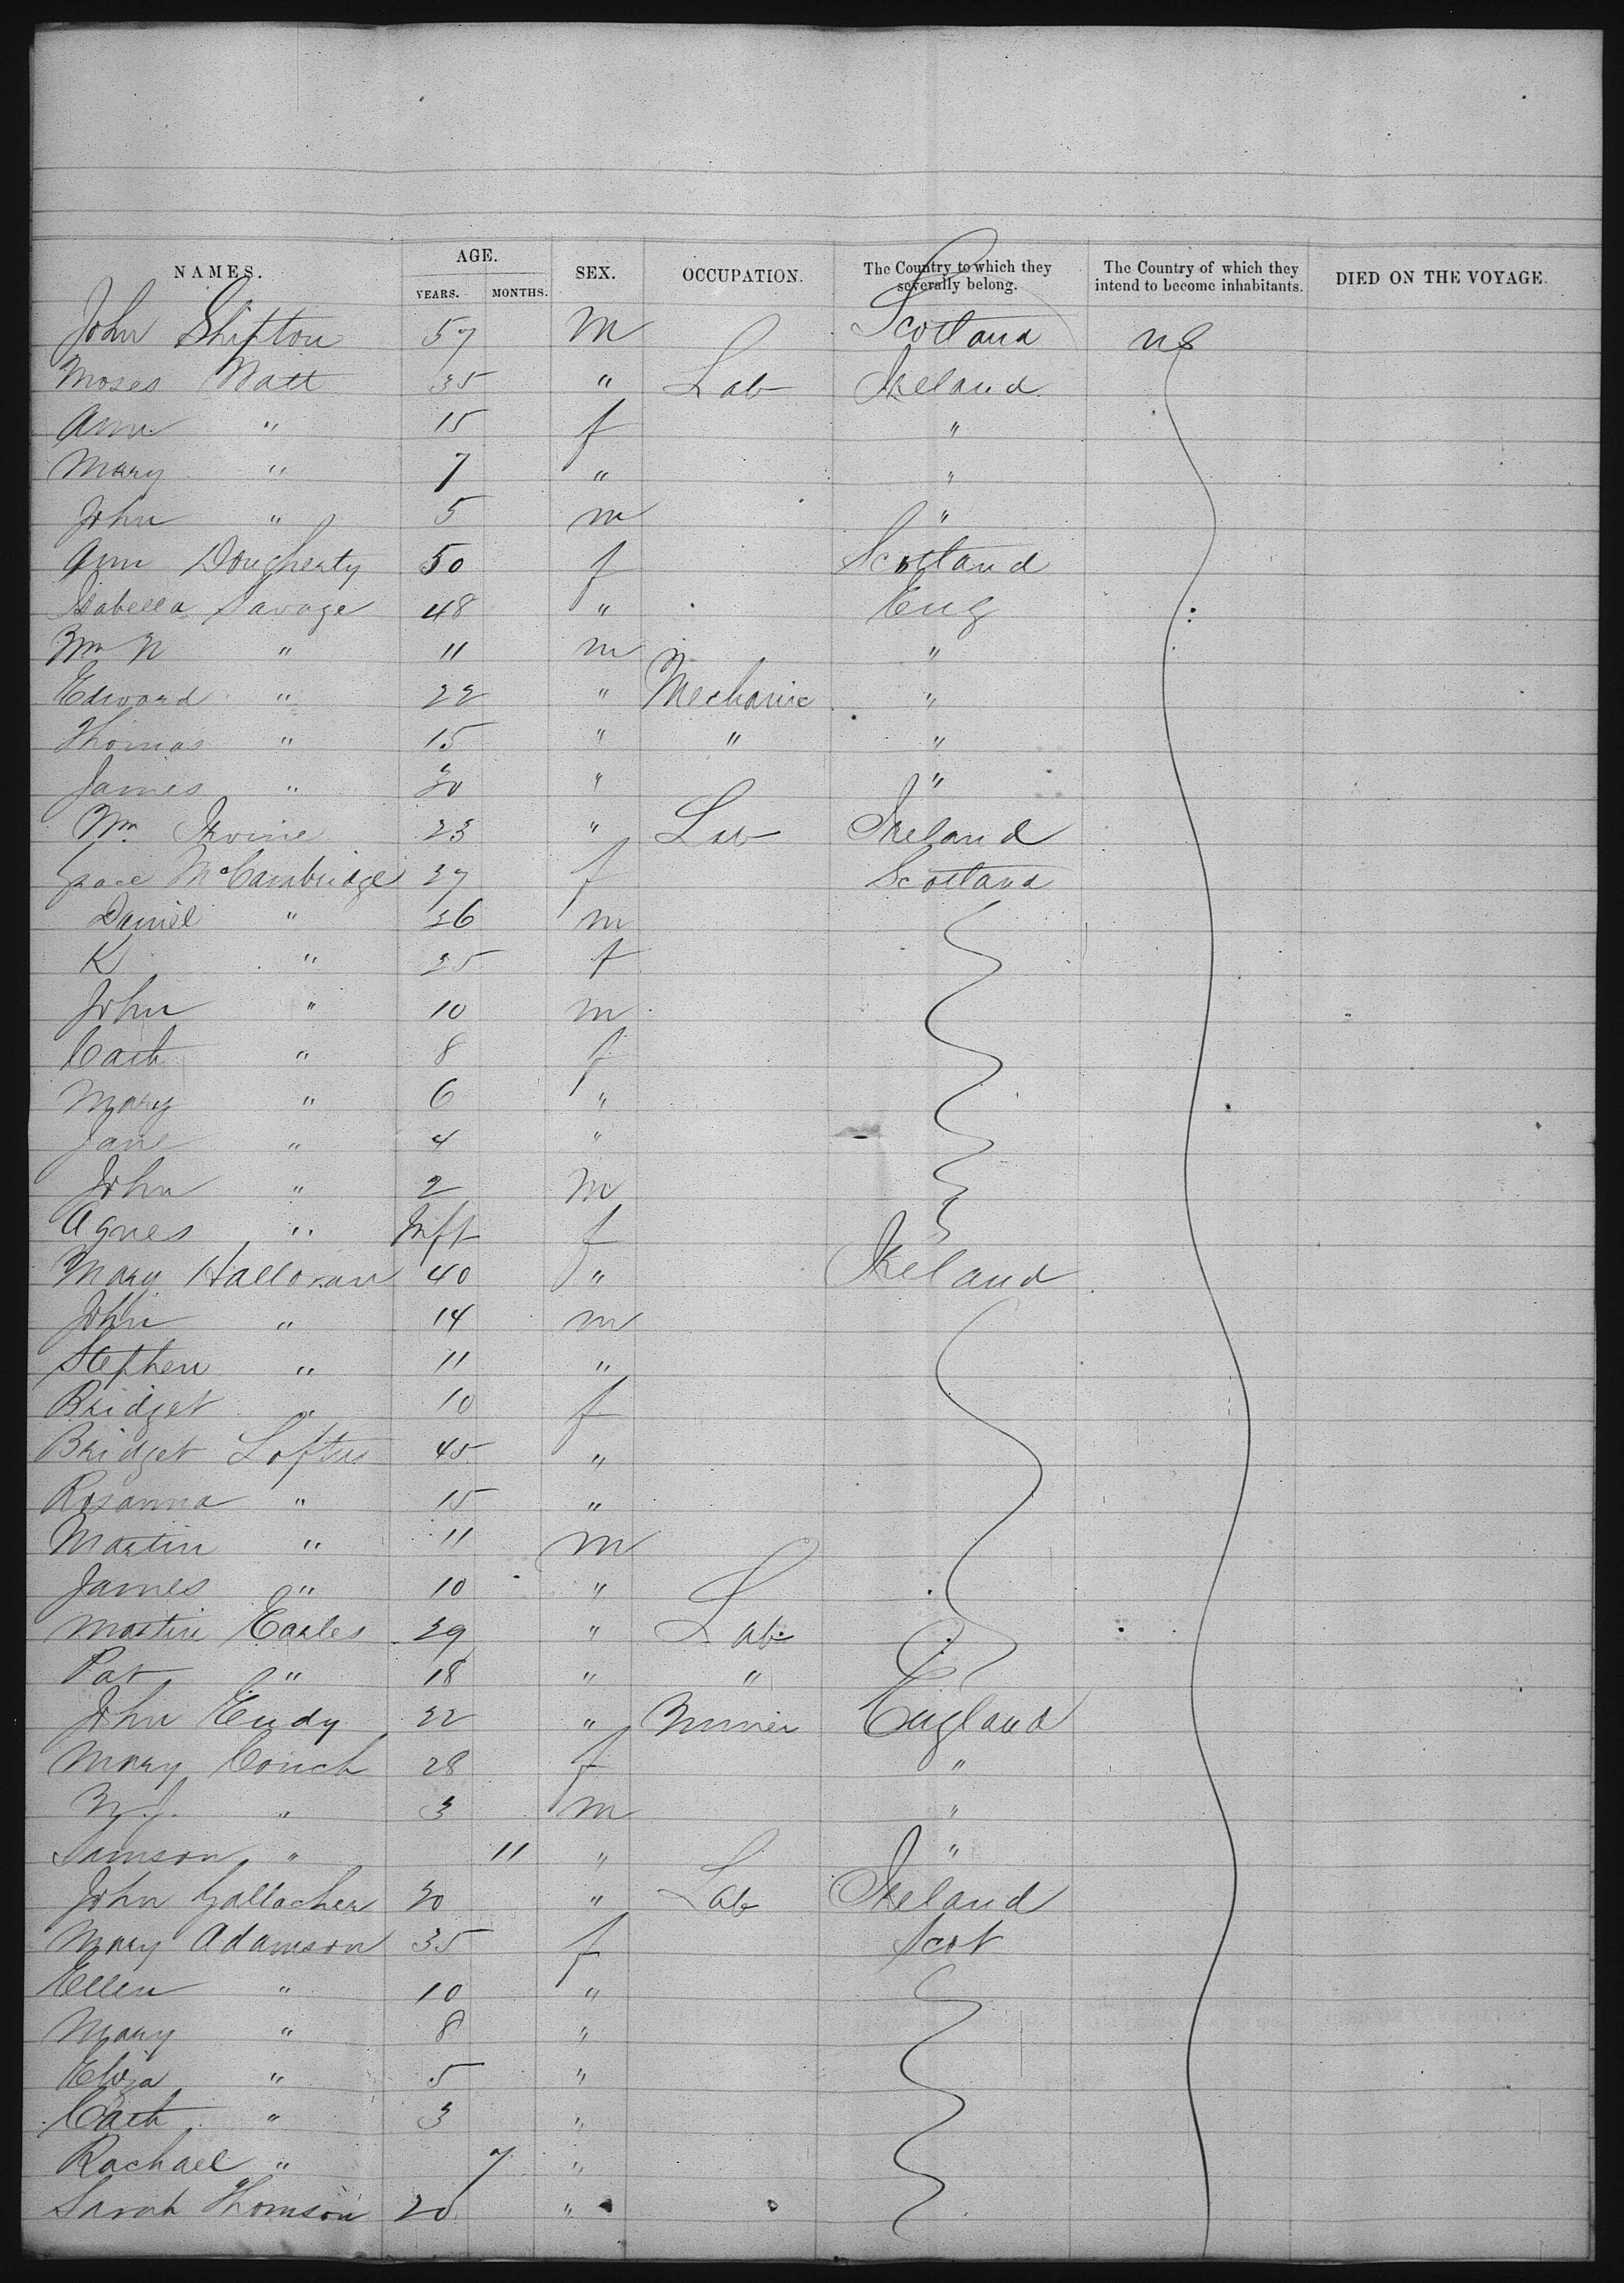 NAMES. AGE. YEARS. MONTHS. SEX. OCCUPATION. The Country to which they severally belong. The Country of which they intend to become inhabitants. DIED ON THE VOYAGE.
John Shifton 57 m Scotland US
Moses Watt 35 " Lab Ireland
Ann " 15 f "
Mary " 7 " "
John " 5 m "
Ann Dougherty 50 f Scotland
Isabella Savage 48 " Eng
Wm N " 11 m "
Edward " 22 " Mechanic "
Thomas " 15 " " "
James " 30 " "
Wm Irvine 23 " Lab Ireland
Grace McCambridge 37 f Scotland
Daniel " 36 m
K " 35 f
John " 10 m
Cath " 8 f
Mary " 6 "
Jane " 4 "
John " 2 m
Agnes " Inft f
Mary Halloran 40 " Ireland
John " 14 m
Stephen " 11 "
Bridget " 10 f
Bridget Loftus 45 "
Rosanna " 15 "
Martin " 11 m
James " 10 "
Martin Earles 29 " Lab
Pat " 18 " "
John Eudy 22 " Minier England
Mary Couch 28 f "
" 3 m "
Samson " 11 " "
John Gallacher 30 " Lab Ireland
Mary Adamson 35 f Scot
Ellen " 10 "
Mary " 8 "
Eliza " 5 "
Cath " 3 "
Rachael " 7 "
Sarah Thomson 20 "